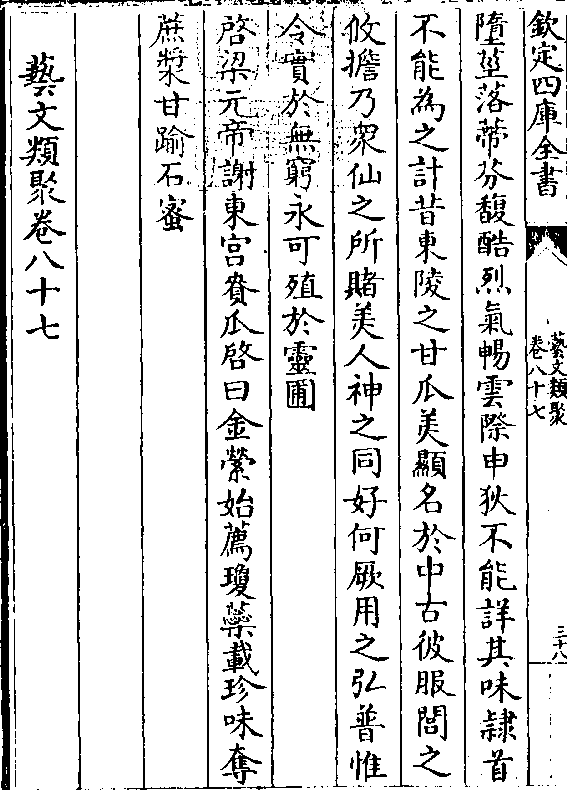 欽定四庫全書
藝文類聚
卷八十七
三十八
墮莖落蒂芬馥酷烈氣暢雲際申狄不能詳其味隷首
不能為之計昔東陵之甘瓜美顯名於中古彼服閭之
攸擔乃衆仙之所賭美人神之同好何厥用之弘普惟
令實於無窮永可殖於靈圃
啓梁元帝謝東宮賚瓜啓曰金縈始薦瓊蘂載珍味奪
蔗漿甘踰石蜜
藝文類聚卷八十七